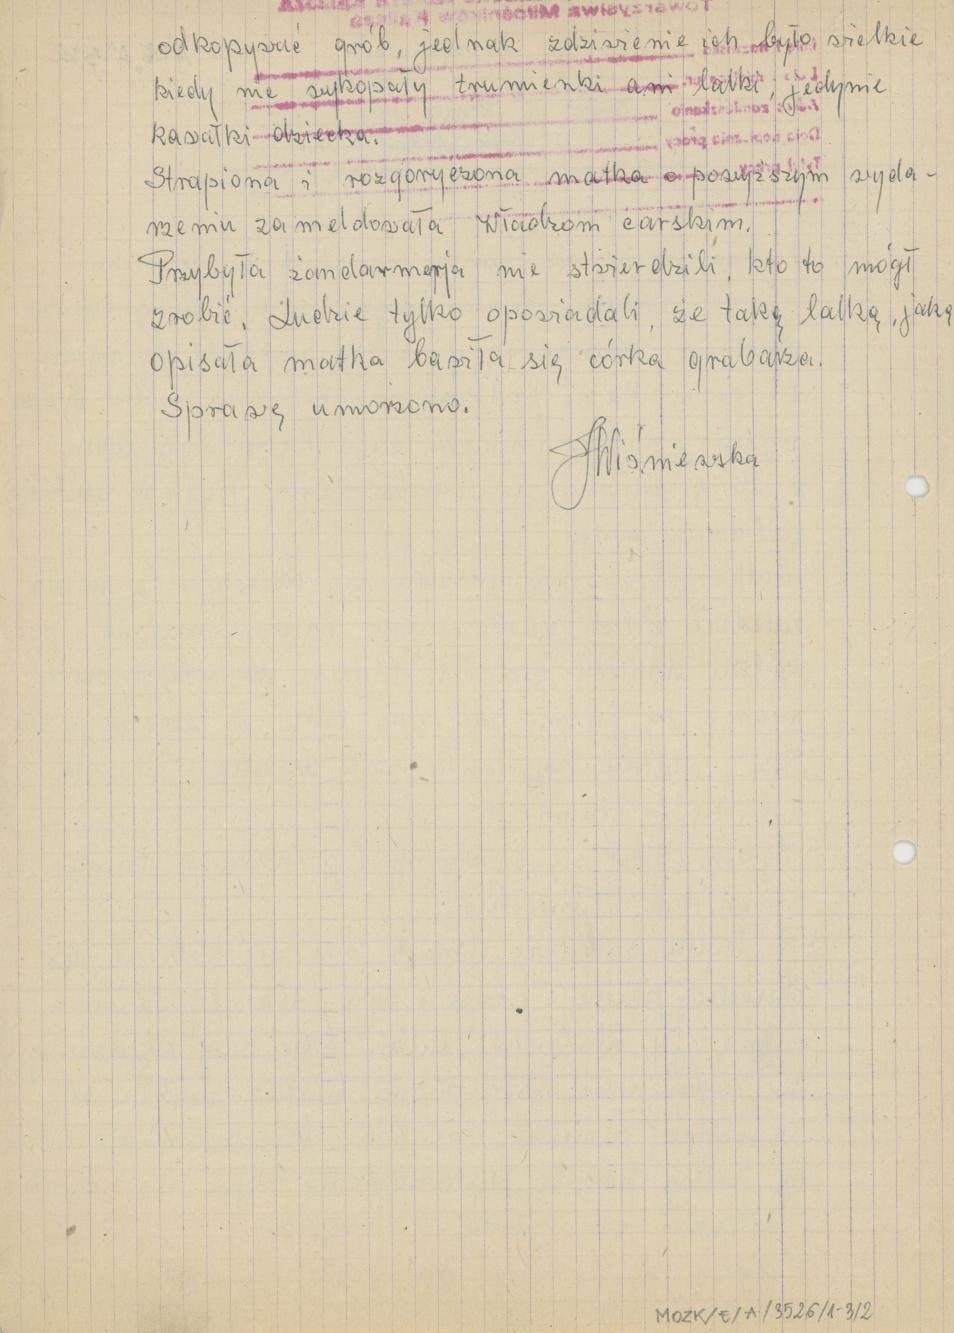 odkopywać grób, jednak zdziwienie ich było wielkie
kiedy nie wykopały trumienki ani lalki, jedynie
kawałki dziecka.
Strapiona i rozgoryczona matka o powyższym wyda-
rzeniu zameldowała Władzom carskim.
Przybyła żandarmerja nie stwierdzili, kto to mógł
zrobić. Ludzie tylko opowiadali, że taką lalką, jaką
opisała matka bawiła się córka grabarza.
Sprawę umorzono.
JWiśniewska
MOZK/E/A/3526/1-3/2